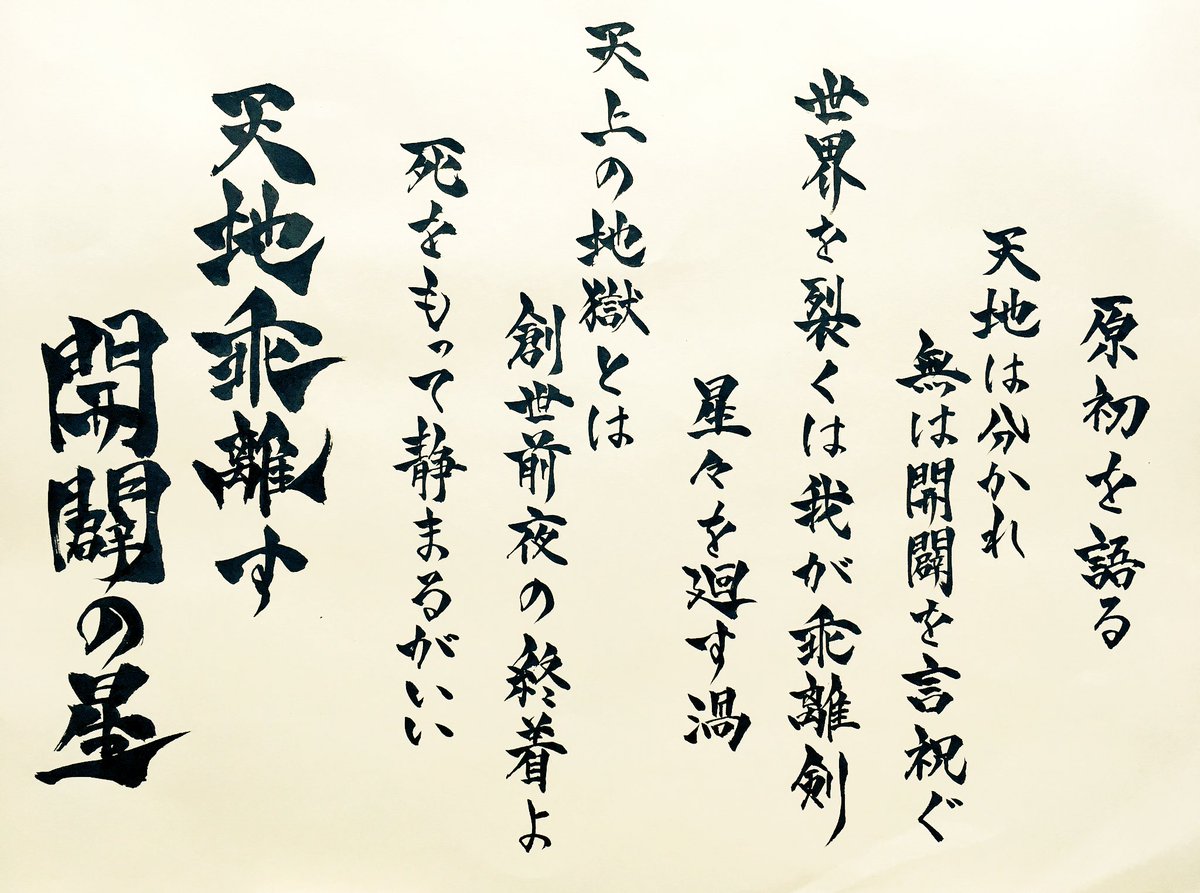 原初を語る
天地は分かれ
無は開闢を言祝ぐ
世界を裂くは我が乖離剣
星々を廻す渦
天上の地獄とは
創世前夜の終着よ
死をもって静まるがいい
天地乖離す
開闢の星